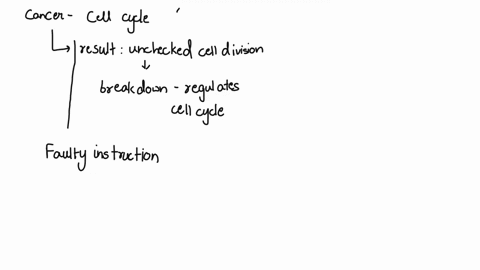 Cancer - Cell cycle
result : unchecked cell division
breakdown - regulates
cell cycle
Faulty instruction